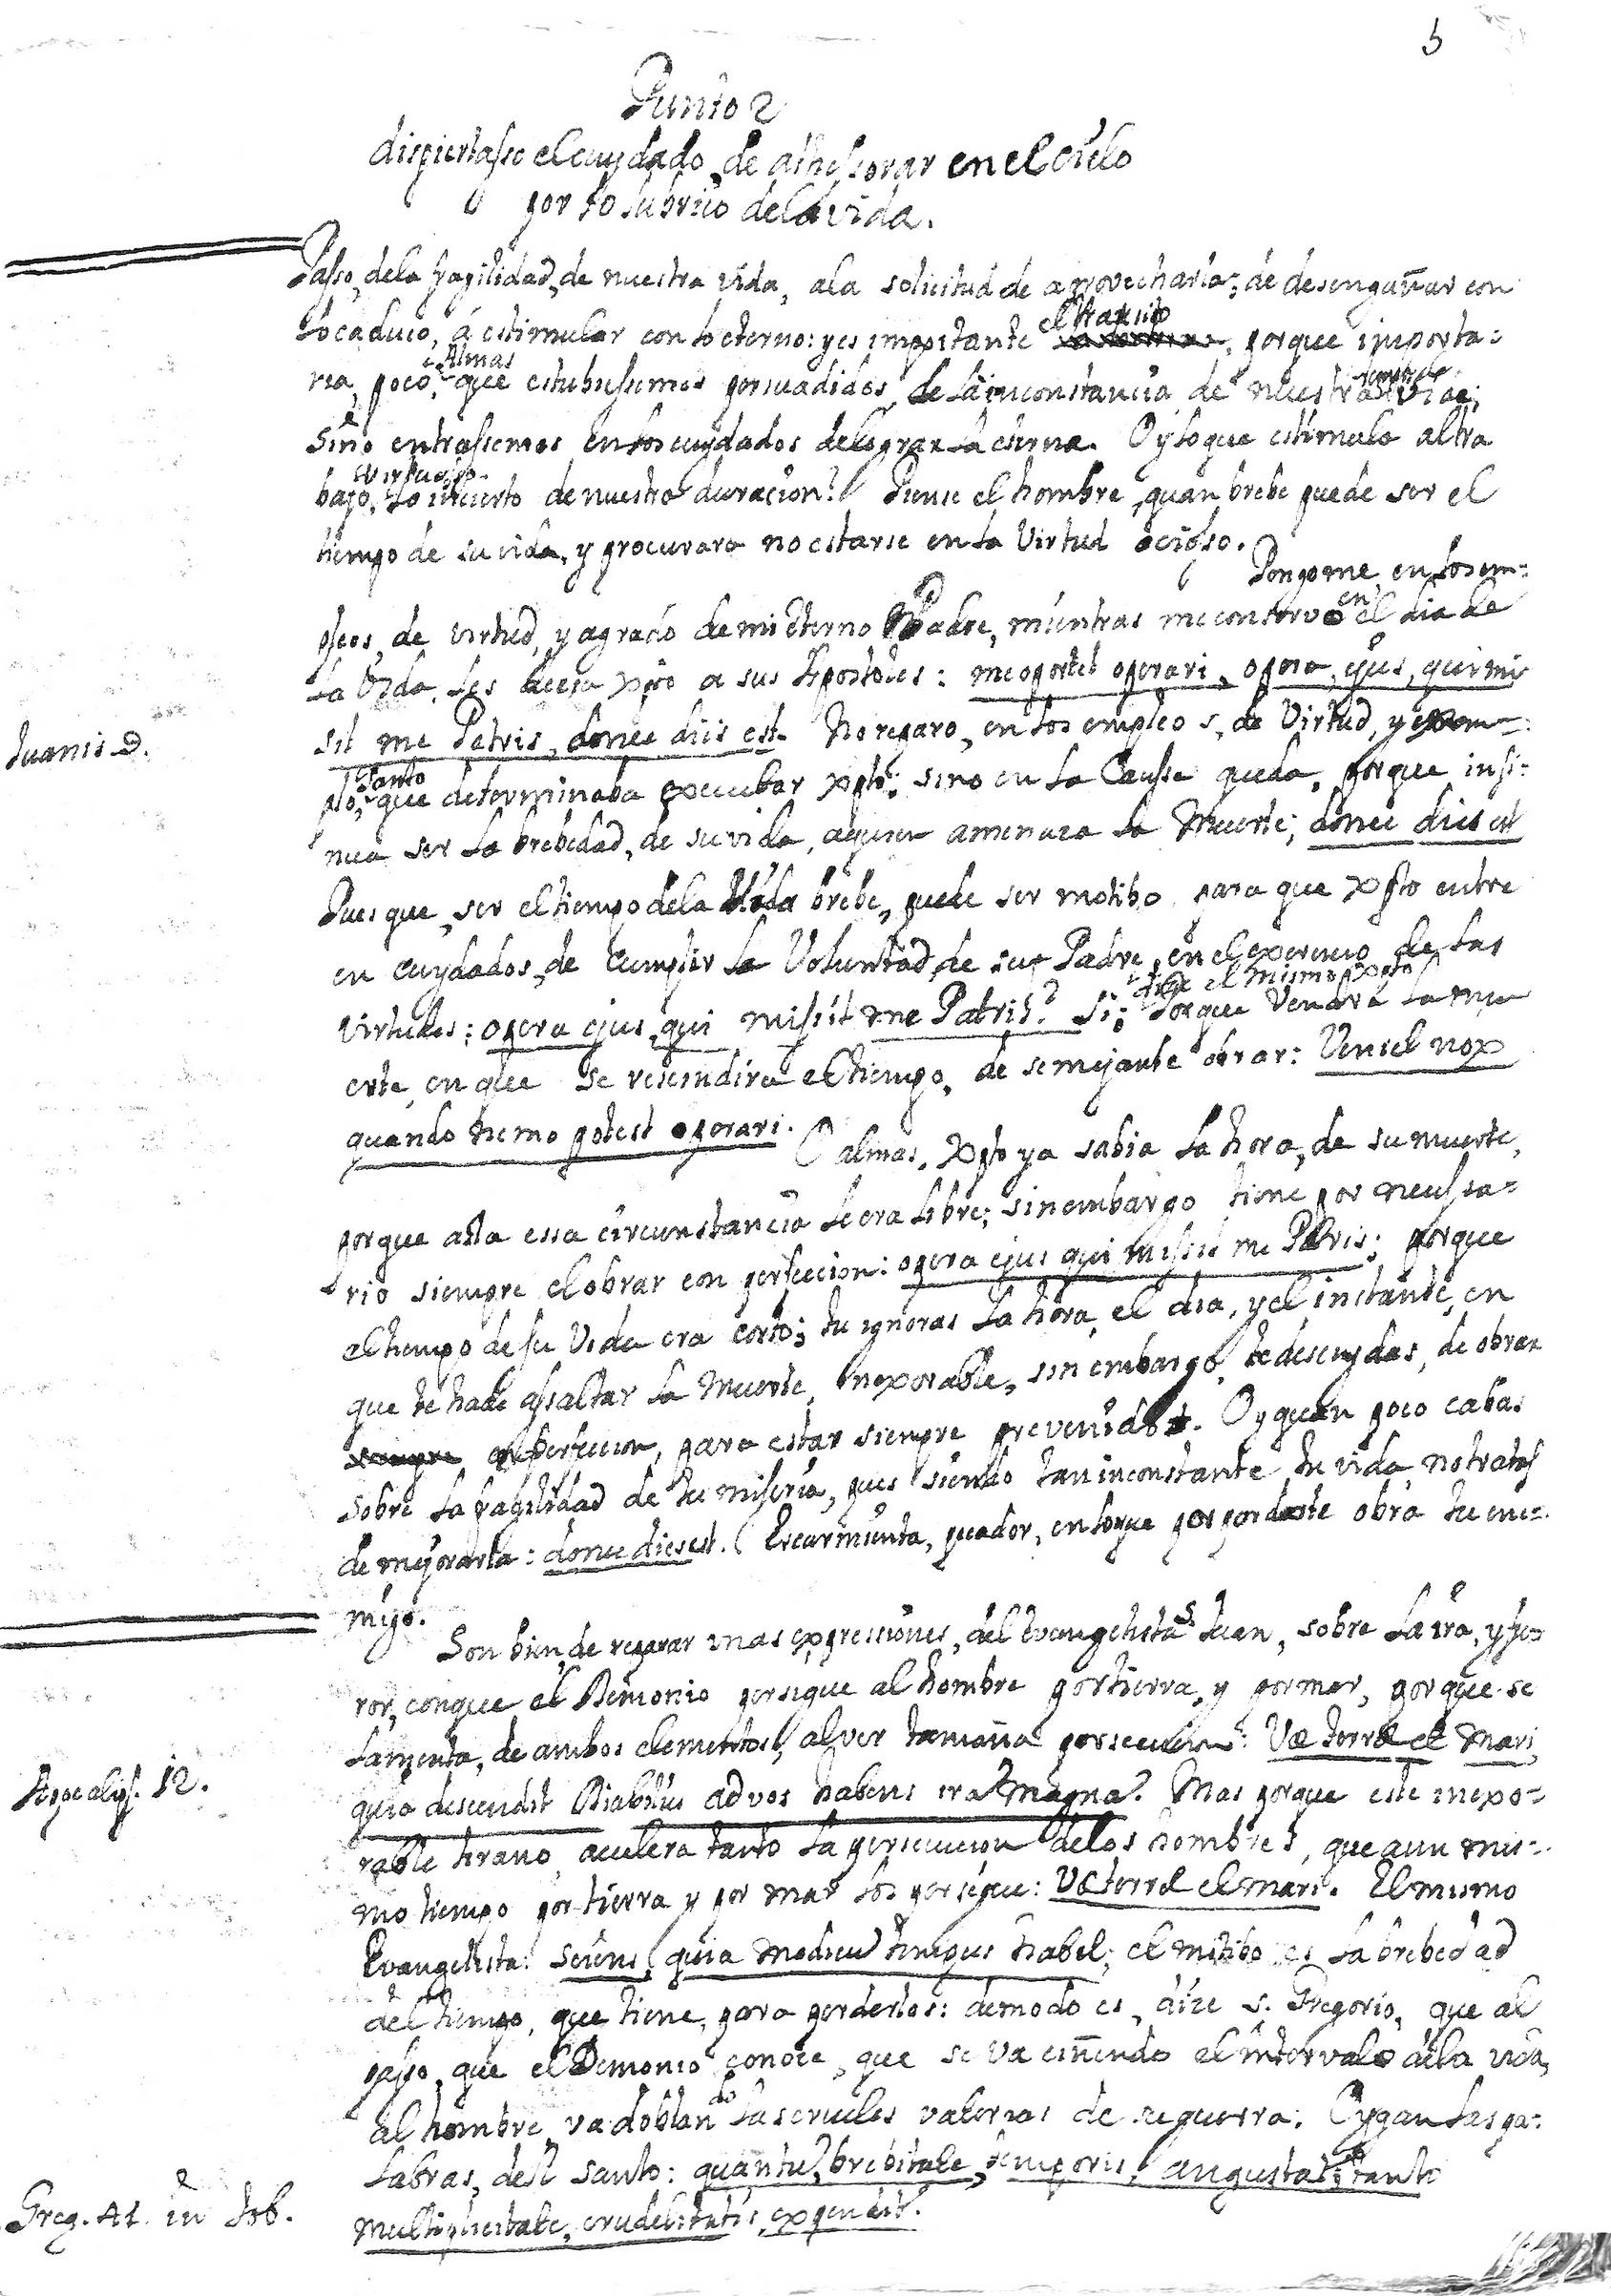 5
Punto 2
dispiertasse el cuydado, de athesorar en el cielo
por lo lubrico de la vida.
Passo, de la fragilidad, de nuestra vida, a la solicitud de aprovecharla; de desengañar con
lo caduco, á estimular con lo eterno: y es importante el transito, porque importa=
ria, poco, Almas que estubiessemos persuadidos, de la inconstancia de nuestra vida;
sino entrassemos en los cuydados de lograr la eterna. O y lo que estimula al tra
bajo, virtuoso lo incierto de nuestra duracion! Piense el hombre, quan brebe puede ser el
tiempo de su vida, y procurara no estarse en la Virtud ocioso.
Pongome, en los em=
pleos, de virtud, y agrado de mi Eterno Padre, mientras me conservo en el dia de
la Vida, les decia Xpto a sus Apostoles: me oportet operari, opera, ejus, qui mi
Juanis 9.
sit me Patris, donec diis est. No reparo, en los empleos, de Virtud, y exem=
plo, Santo que determinaba executar Xpto; sino en la Caussa queda, porque insi=
nua ser la brebedad, de su vida, a quien amenaza la Muerte; donec diis est
Pues que, ser el tiempo de la Vida brebe, puede ser motibo para que Xpto entre
en cuydados, de cumplir la Voluntad, de su Padre, en el exercicio de las
virtudes: opera ejus, qui missit me Patris? Si; dize el mismo Xpto Porque Vendrá la mu
erte, en que se rescindira el tiempo, de semejante obrar: Veniet nox
quando nemo potest operari. O almas, Xpto ya sabia la hora, de su muerte,
porque asta essa circunstancia le era libre; sin embargo tiene por necessa=
rio siempre el obrar con perfeccion: opera ejus qui missit me Patris; porque
el tiempo de su Vida era corto; tu ignoras la hora, el dia, y el instante, en
que te ha de assaltar la Muerte, inexorable, sin embargo, te descuydas, de obrar
con perfeccion, para estar siempre prevenido. O y quan poco cabas
sobre la fragilidad de tu miseria, pues siendo tan inconstante tu vida, no tratas
de mejorarla: donec dies est. Escarmienta, pecador, en lo que por perderte obra tu ene=
migo.
Son bien, de reparar unas expressiones, del Evangelista S. Juan, sobre la ira, y fu
ror, con que el Demonio persigue al hombre por tierra, y por mar, porque se
lamenta, de ambos elementos, al ver tamaña persecucion: Væ terræ et Mari,
Apocalyps. 12.
quia descendit Diabolus ad vos habens ira magna. Mas porque este inexo=
rable tirano, acelera tanto la persecucion de los hombres, que a un mis=
mo tiempo por tierra y por mar los persigue: Væ terræ et mari. El mismo
Evangelista: sciens, quia modicu tempus habet; el motibo es la brebedad
del tiempo, que tiene, para perderlos: de modo es, dize S. Gregorio, que al
passo, que el Demonio conoce, que se va ciñendo el intervalo de la vida,
al hombre, va doblando las crueles baterias de su guerra. Oygan las pa=
labras, del santo: quantu, brebitate, temporis, angustat; tanto
Greg. At. in Job.
multiplicitate, crudelitatis, expendit.